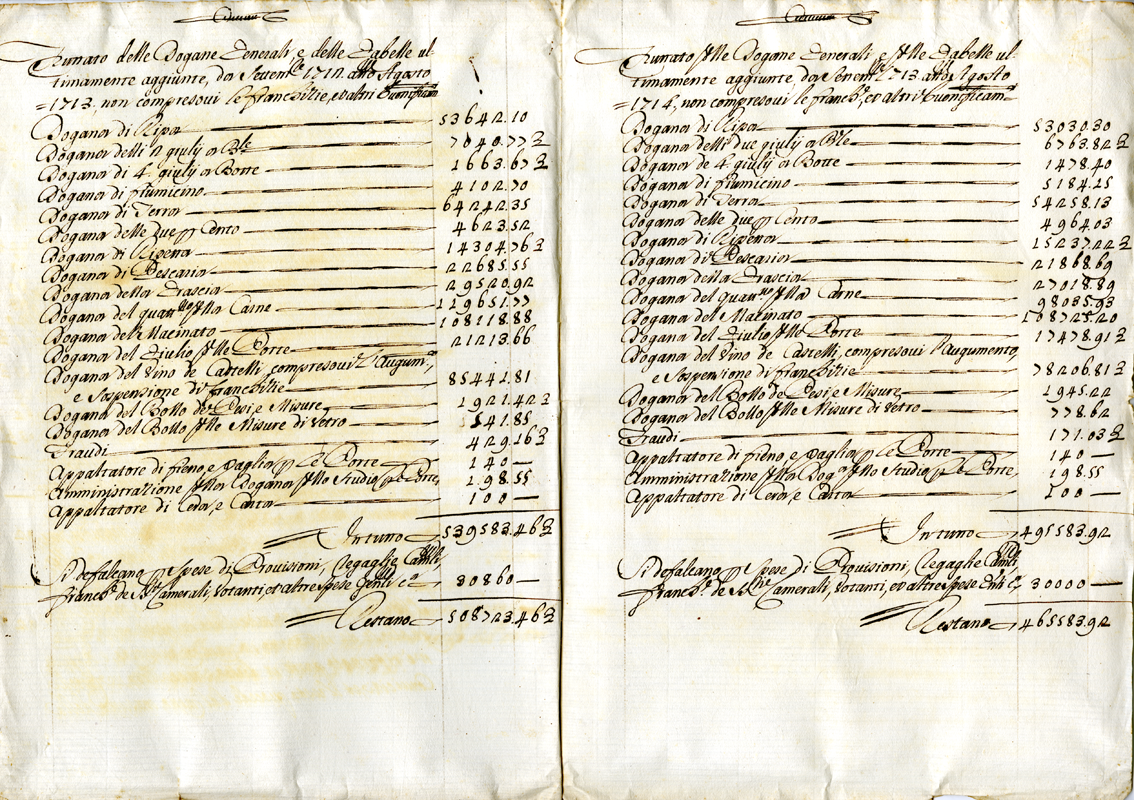 Fruttato delle Dogane Generali, e delle Gabelle ul
timamente aggiunte, da Settembre 1712 atto Agosto
=1713, non compresovi le franchitie, et altri buonificam
Dogana di Ripa 53642.10
Dogana delli 2 giulij a Ble 7040.77½
Dogana di 4 giulij a Botte 1663.67½
Dogana di fiumicino 4102.70
Dogana di Terra 64242.35
Dogana delle due p Cento 4623.52
Dogana di Ripetta 14304.76½
Dogana di Pescaria 22685.55
Dogana della Grascia 29520.92
Dogana del quattrino della Carne 119651.77
Dogana del Macinato 108118.88
Dogana del Giulio delle Porte 21213.66
Dogana del Vino de Castelli, compresovi l'Augum,
e Sospensione di franchitie 85441.81
Dogana del Bollo de Pesi e Misure 1921.42½
Dogana del Bollo delle Misure di Vetro 541.85
Fraudi 429.16½
Appaltatore di fieno, e paglia p le Porte 140 —
Amministrazione della Dogana dello Studio p le Porte, 198.55
Appaltatore di Cera, e Carta 100 —
In tutto 539583.46½
Si defalcano p Spese di Provisioni, Regaglie
franch. de Camerali, Votanti, et altre Spese 30860 —
Restano 508723.46½
Fruttato delle Dogane Generali, e delle Gabelle ul
timamente aggiunte, da Settembre 1713 atto Agosto
=1714, non compresovi le franch., et altri buonificam
Dogana di Ripa 53030.30
Dogana delli due giulij a Ble 6763.82½
Dogana de 4 giulij a Botte 1478.40
Dogana di fiumicino 5184.25
Dogana di Terra 54258.13
Dogana delle due p Cento 4964.03
Dogana di Ripetta 15237.22½
Dogana di Pescaria 21868.69
Dogana della Grascia 27018.89
Dogana del quattrino della Carne 98035.93
Dogana del Macinato 108725.20
Dogana del Giulio delle Porte 17478.91½
Dogana del Vino de Castelli, compresovi l'Augumento,
e Sospensione di franchitie 78206.81½
Dogana del Bollo de Pesi e Misure 1945.22
Dogana del Bollo delle Misure di Vetro 778.62
Fraudi 171.03½
Appaltatore di fieno, e paglia p le Porte 140 —
Amministrazione della Dog. dello Studio p le Porte, 198.55
Appaltatore di Cera, e Carta 100 —
In tutto 495583.92
Si defalcano p Spese di Provisioni, Regaglie
franch. de Camerali, Votanti, et altre Spese 30000 —
Restano 465583.92